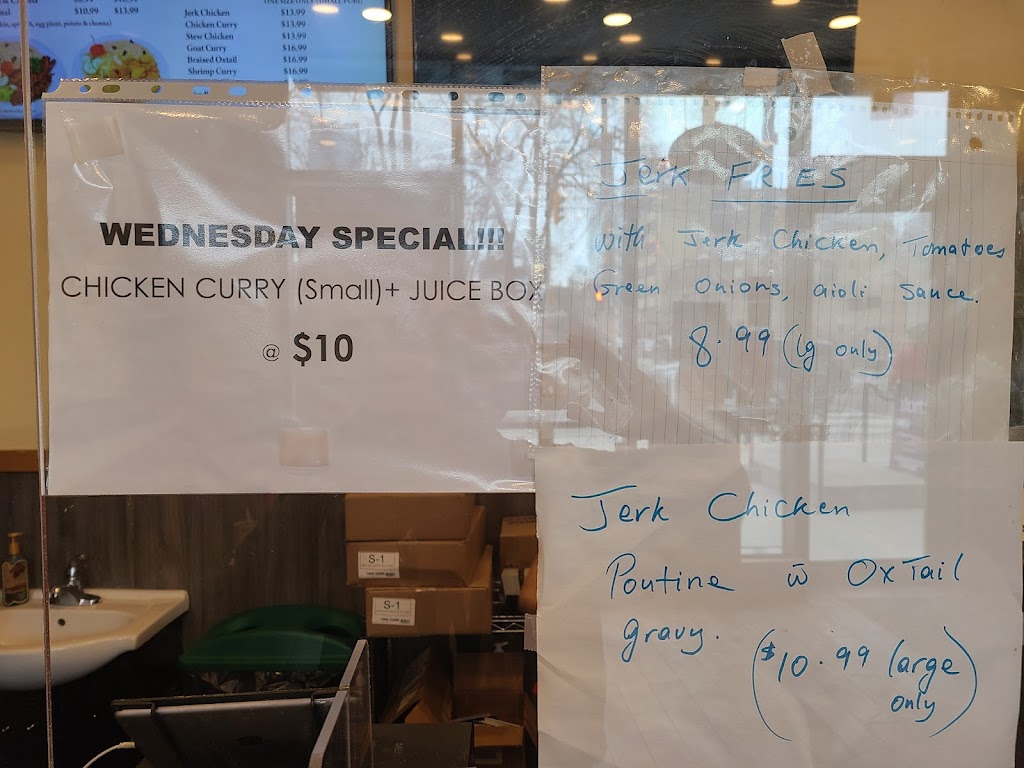 ONE SIZE ONLY (SMALL PORT)
$10.99 $13.99
egg plant, potato & channa)
Jerk Chicken $13.99
Chicken Curry $13.99
Stew Chicken $13.99
Goat Curry $16.99
Braised Oxtail $16.99
Shrimp Curry $16.99
WEDNESDAY SPECIAL!!!
CHICKEN CURRY (Small)+ JUICE BOX
@ $10
Jerk FRIES
with Jerk Chicken, Tomatoes
Green Onions, aioli sauce.
8.99 (lg only)
Jerk Chicken
Poutine w̄ OxTail
gravy.
($10.99 large
only)
S-1
S-1